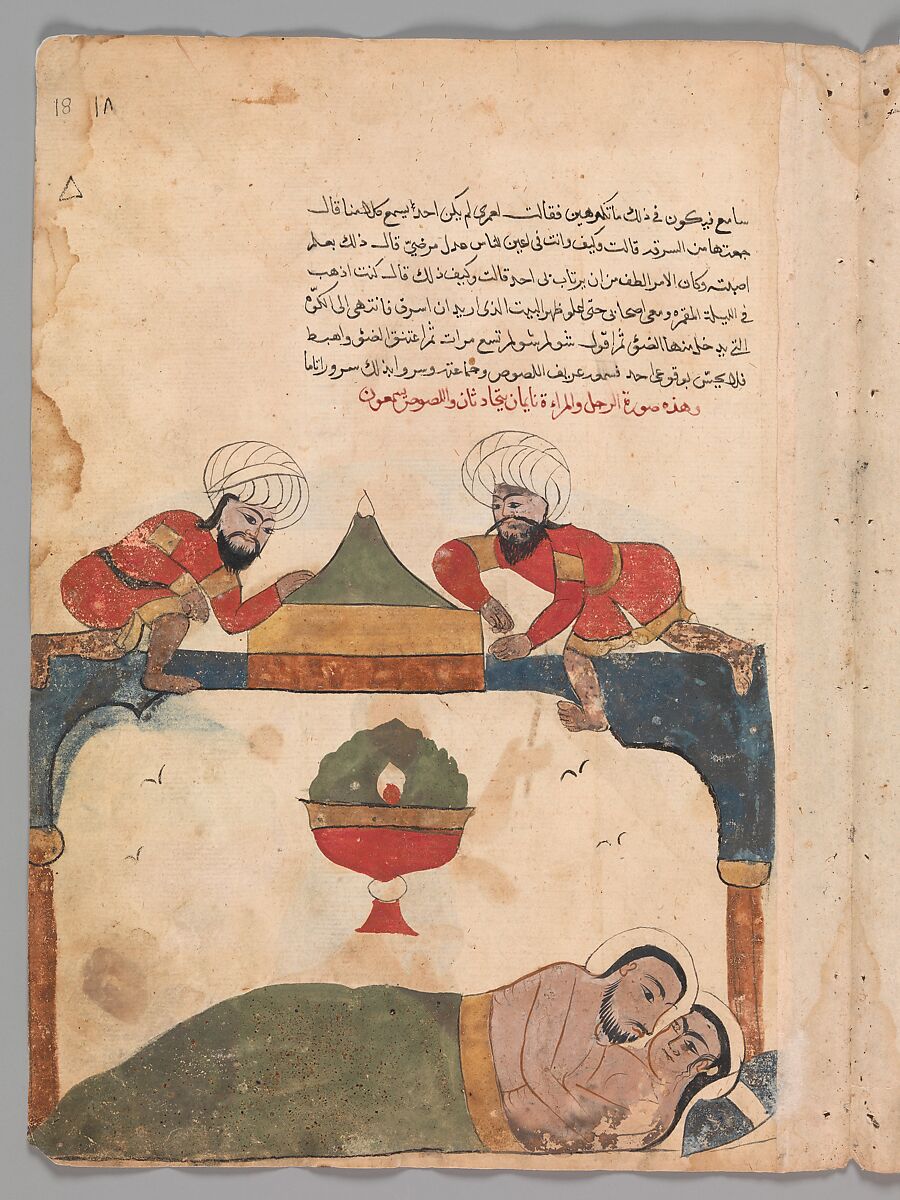 18 ١٨
سامع فيكون في ذلك ما تكرهين فقالت لعمري لم يكن احد يسمع كلامنا قال
جمعتها من السرقه قالت وكيف وانت في اعين الناس عدل مرضي قال ذلك بعلم
اصبته وكان الامر الطف من ان يرتاب بي احد قالت وكيف ذلك قال كنت اذهب
في الليلة المقمره ومعي اصحابي حتى اعلو ظهر البيت الذى اريد ان اسرق فانتهى الى الكوة
التي يدخل منها الضوء ثم اقول شولم شولم تسع مرات ثم اعتنق الضوء واهبط
فلا يحس بوقوعي احد فسمعه عريف اللصوص وجماعته وسروا بذلك سرورا تاما
وهذه صورة الرجل والمراءة نايمان يتحادثان واللصوص يسمعون